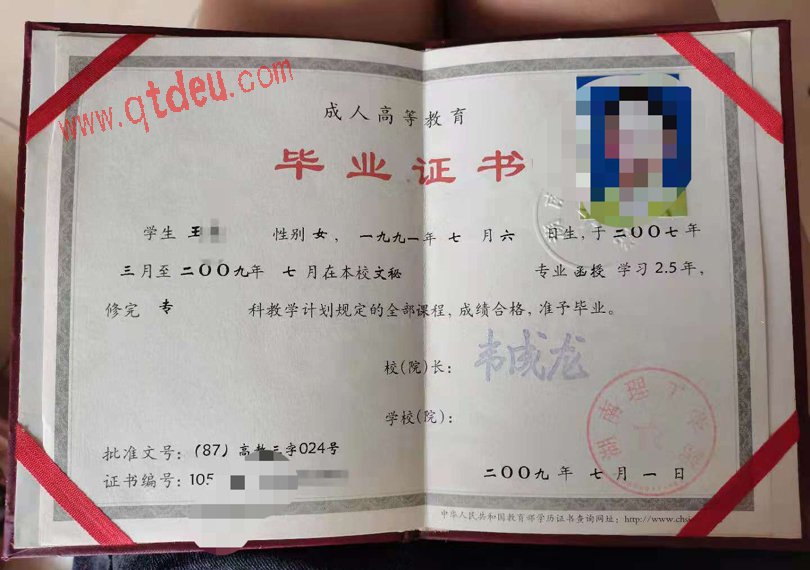 www.qtdeu.com
成人高等教育
毕业证书
学生 王 性别 女，一九九一年 七 月 六 日生，于 二〇〇七 年
三月至 二〇〇九年 七 月在本校 文秘 专业 函授 学习 2.5 年，
修完 专 科教学计划规定的全部课程，成绩合格，准予毕业。
校(院)长： 韦成龙
学校(院)：
湖南理工学院
批准文号：(87) 高教三字024号
证书编号：105
二〇〇九 年 七 月 一 日
中华人民共和国教育部学历证书查询网址：http://www.chsi